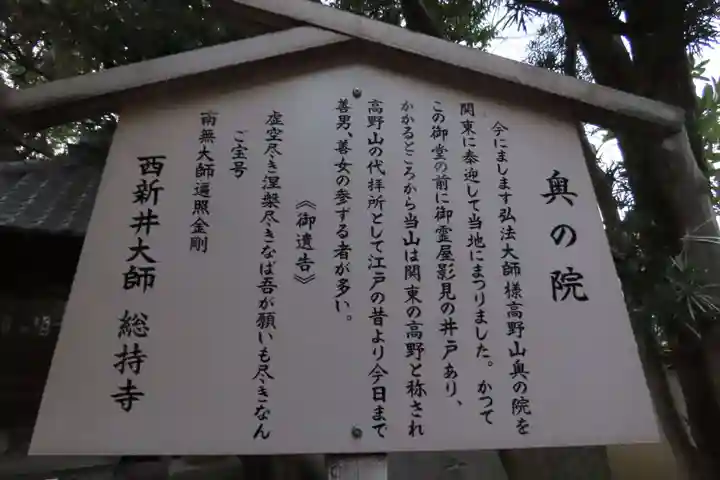 奥の院
今にまします弘法大師様高野山奥の院を
関東に奉迎して当地にまつりました。かつて
この御堂の前に御霊屋影見の井戸あり、
かかるところから当山は関東の高野と称され
高野山の代拝所として江戸の昔より今日まで
善男、善女の参ずる者が多い。
《御遺告》
虚空尽き涅槃尽きなば吾が願いも尽きなん
ご宝号
南無大師遍照金剛
西新井大師 総持寺